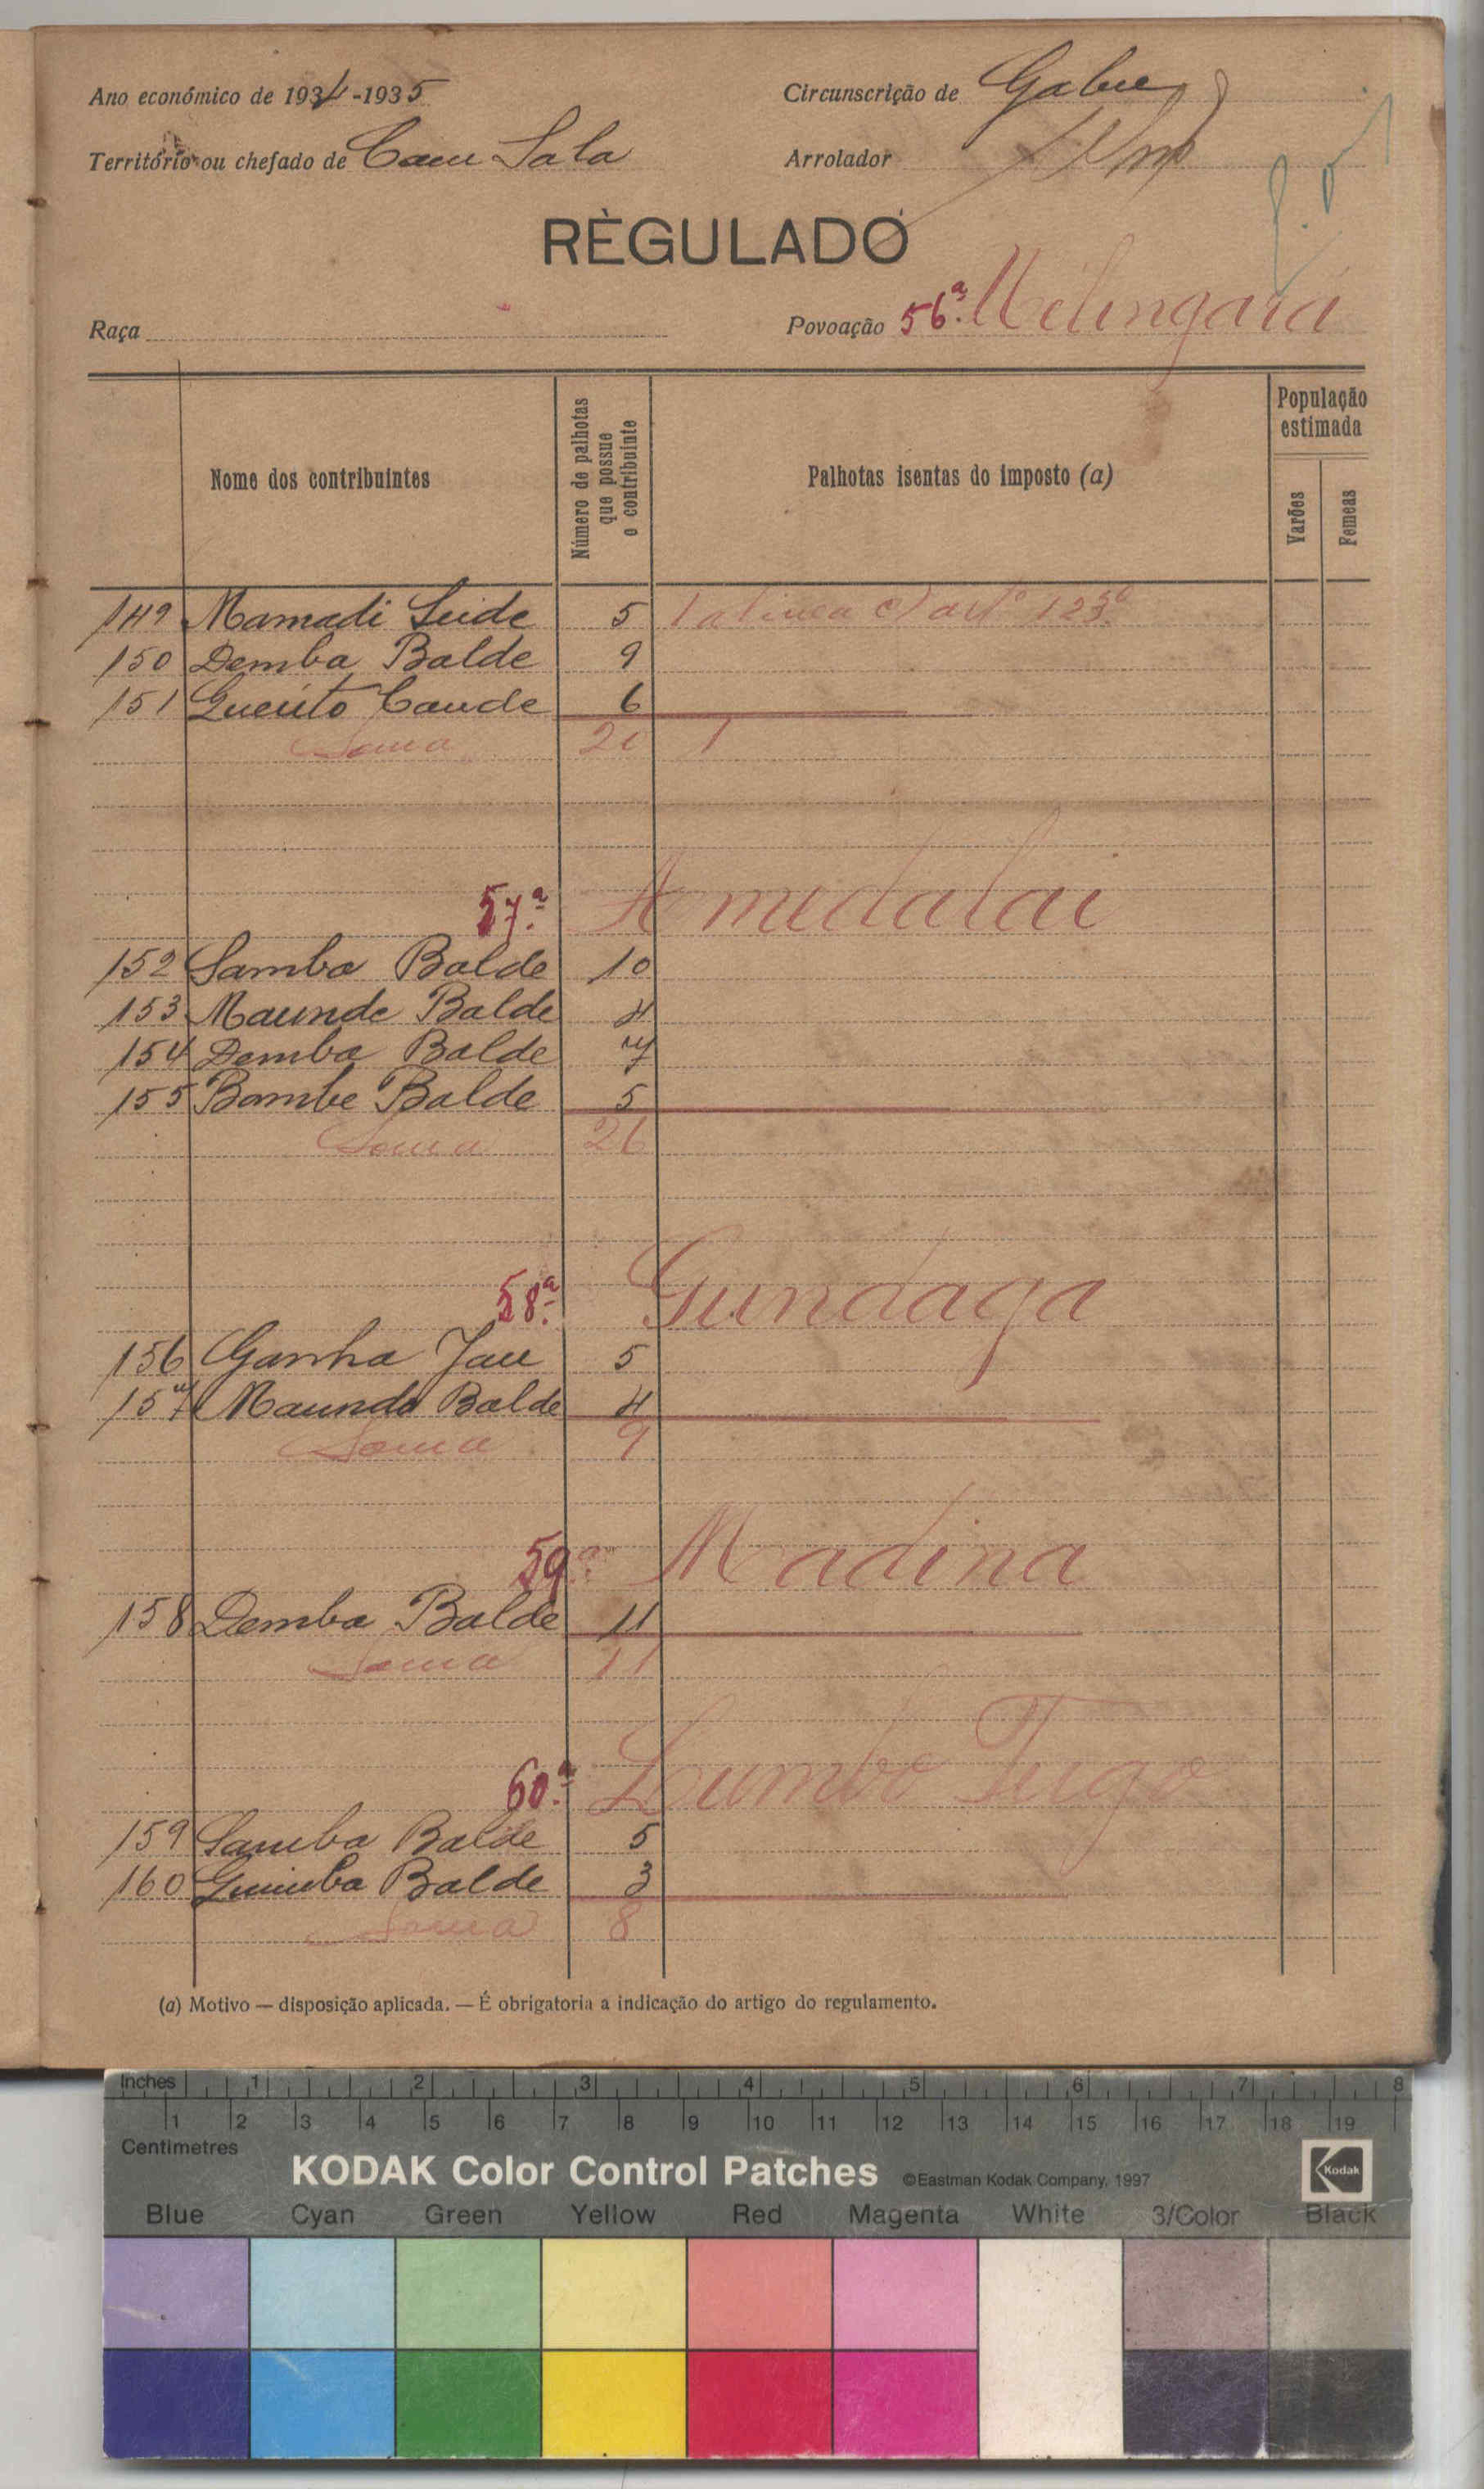 Ano económico de 1934-1935
Circunscrição de Gabu
Território ou chefado de Cam Sala
Arrolador
RÈGULADO
Raça
Povoação 56.ª Velingará
Nome dos contribuintes
Número de palhotas que possue o contribuinte
Palhotas isentas do imposto (a)
População estimada
Varões
Femeas
149 Mamadi Seide 5 1 alinea c) artº 123º
150 Demba Balde 9
151 Cande 6
Soma 20 1
57.ª Amedalai
152 Samba Balde 10
153 Maunde Balde 4
154 Demba Balde 7
155 Bombe Balde 5
Soma 26
58.ª Gundaga
156 Ganha Jau 5
157 Maundo Balde 4
Soma 9
59.ª Madina
158 Demba Balde 11
Soma 11
60.ª Lumbo Tugo
159 Samba Balde 5
160 Guimba Balde 3
Soma 8
(a) Motivo — disposição aplicada. — É obrigatoria a indicação do artigo do regulamento.
Inches 1 2 3 4 5 6 7 8
1 2 3 4 5 6 7 8 9 10 11 12 13 14 15 16 17 18 19
Centimetres
KODAK Color Control Patches ©Eastman Kodak Company, 1997 Kodak
Blue Cyan Green Yellow Red Magenta White 3/Color Black